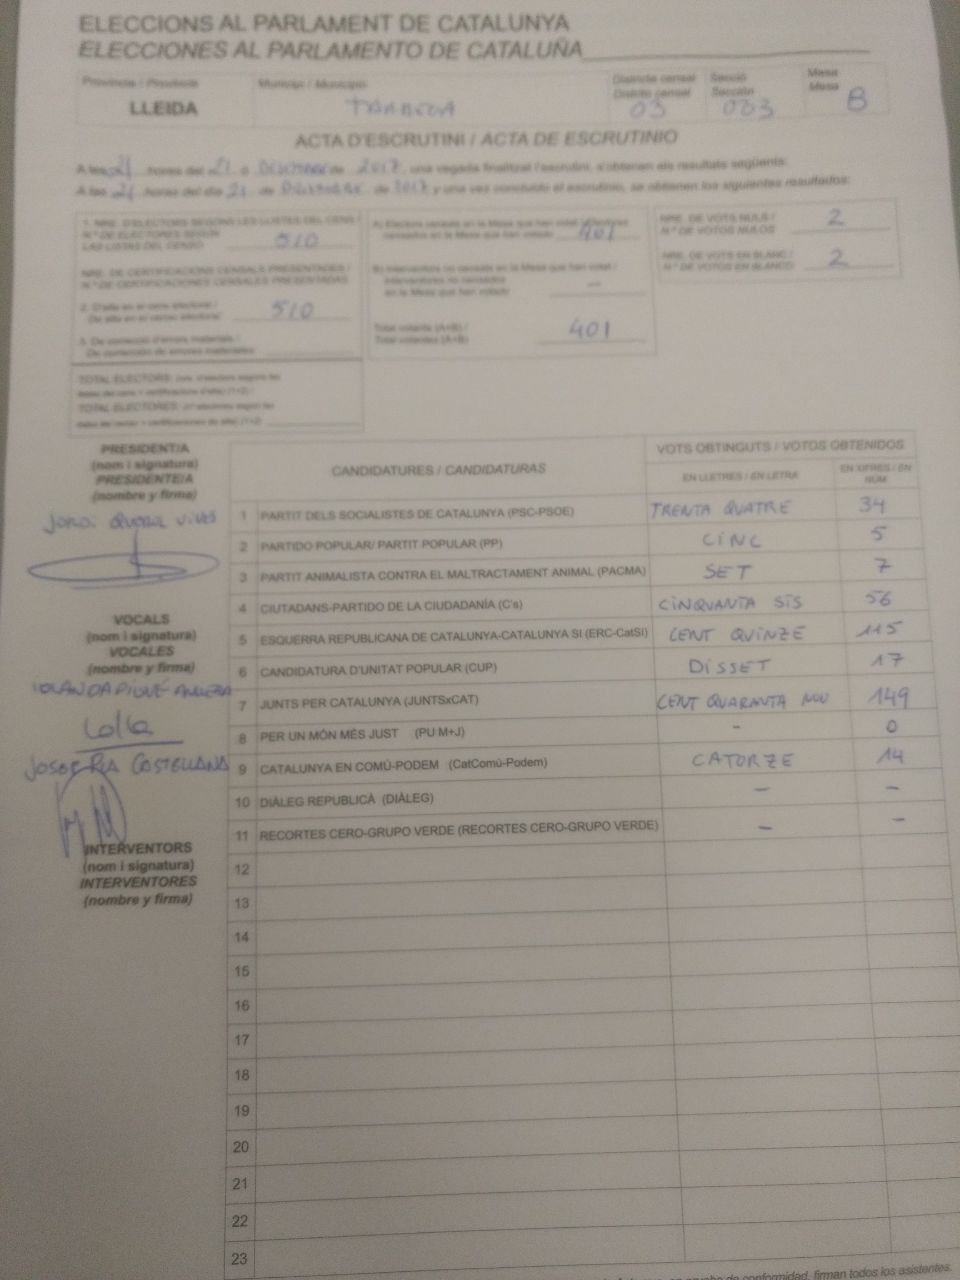 ELECCIONS AL PARLAMENT DE CATALUNYA
ELECCIONES AL PARLAMENTO DE CATALUÑA
Província / Provincia
LLEIDA
Municipi / Municipio
Districte censal
Distrito censal
03
Secció
Sección
003
Mesa
Mesa
B
ACTA D'ESCRUTINI / ACTA DE ESCRUTINIO
A les 21 hores del 21 de 2017, una vegada finalitzat l'escrutini, s'obtenen els resultats següents:
A las 21 horas del día 21 de de 2017 y una vez concluido el escrutinio, se obtienen los siguientes resultados:
1. NRE. D'ELECTORS SEGONS LES LLISTES DEL CENS /
N.º DE ELECTORES SEGÚN
LAS LISTAS DEL CENSO
510
NRE. DE CERTIFICACIONS CENSALS PRESENTADES /
N.º DE CERTIFICACIONES CENSALES PRESENTADAS
2. D'alta en el cens electoral /
De alta en el censo electoral
510
3. De correcció d'errors materials /
De corrección de errores materiales
TOTAL ELECTORS:
TOTAL ELECTORES:
A) Electors censats en la Mesa que han votat / Electores
censados en la Mesa que han votado
401
B) Interventors no censats en la Mesa que han votat /
Interventores no censados
en la Mesa que han votado
-
Total votants (A+B) /
Total votantes (A+B)
401
NRE. DE VOTS NULS /
N.º DE VOTOS NULOS
2
NRE. DE VOTS EN BLANC /
N.º DE VOTOS EN BLANCO
2
PRESIDENT/A
(nom i signatura)
PRESIDENTE/A
(nombre y firma)
VOCALS
(nom i signatura)
VOCALES
(nombre y firma)
INTERVENTORS
(nom i signatura)
INTERVENTORES
(nombre y firma)
CANDIDATURES / CANDIDATURAS
VOTS OBTINGUTS / VOTOS OBTENIDOS
EN LLETRES / EN LETRA
EN XIFRES / EN NÚM
1 PARTIT DELS SOCIALISTES DE CATALUNYA (PSC-PSOE) TRENTA QUATRE 34
2 PARTIDO POPULAR/ PARTIT POPULAR (PP) CINC 5
3 PARTIT ANIMALISTA CONTRA EL MALTRACTAMENT ANIMAL (PACMA) SET 7
4 CIUTADANS-PARTIDO DE LA CIUDADANÍA (C's) CINQUANTA SIS 56
5 ESQUERRA REPUBLICANA DE CATALUNYA-CATALUNYA SI (ERC-CatSí) CENT QUINZE 115
6 CANDIDATURA D'UNITAT POPULAR (CUP) DISSET 17
7 JUNTS PER CATALUNYA (JUNTSxCAT) CENT QUARANTA NOU 149
8 PER UN MÓN MÉS JUST (PU M+J) - 0
9 CATALUNYA EN COMÚ-PODEM (CatComú-Podem) CATORZE 14
10 DIÀLEG REPUBLICÀ (DIÀLEG) - -
11 RECORTES CERO-GRUPO VERDE (RECORTES CERO-GRUPO VERDE) - -
12
13
14
15
16
17
18
19
20
21
22
23
de conformidad, firman todos los asistentes.